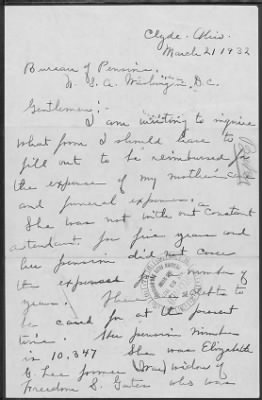 Clyde, Ohio.
March 21 1932
Bureau of Pensions,
U. S. A. Washington, D.C.
Gentlemen;-
I am writing to inquire
what from I should have to
fill out to be reimbursed for
the expense of my mother in law
and funeral expenses.
She was not with out constant
attendant for five years and
her pension did not cover
the expenses number of
years. There are debts to
be cared for at the present
time. Her pension number
is 10,347 She was Elizabeth
C. Lee former widow of
Freedom S. Gates who was